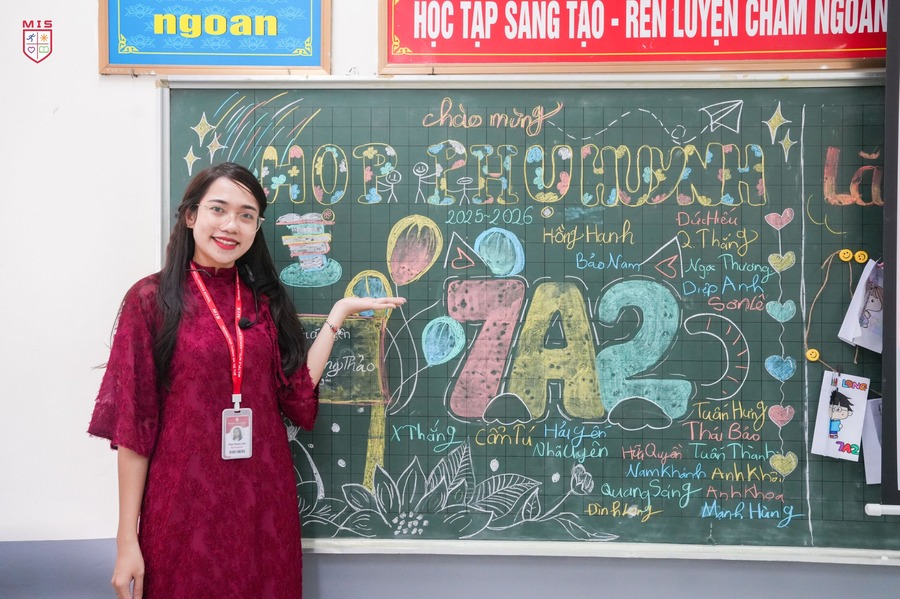 MIS
ngoan
HỌC TẬP SÁNG TẠO - RÈN LUYỆN CHĂM NGOAN
chào mừng
HỌP PHỤ HUYNH
2025-2026
Hồng Hạnh
Bảo Nam
Đức Hiếu
2 Thắng
Ngọc Thương
Diệp Anh
Sơn Lê
7A2
Thảo
X Thắng
Cẩm Tú
Hải Yên
Nhã Uyên
Tuấn Hưng
Thái Bảo
Hữu Quyền
Tuấn Thành
Nam Khánh
Anh Khôi
Quang Sáng
Anh Khoa
Mạnh Hùng
LONG
7A2